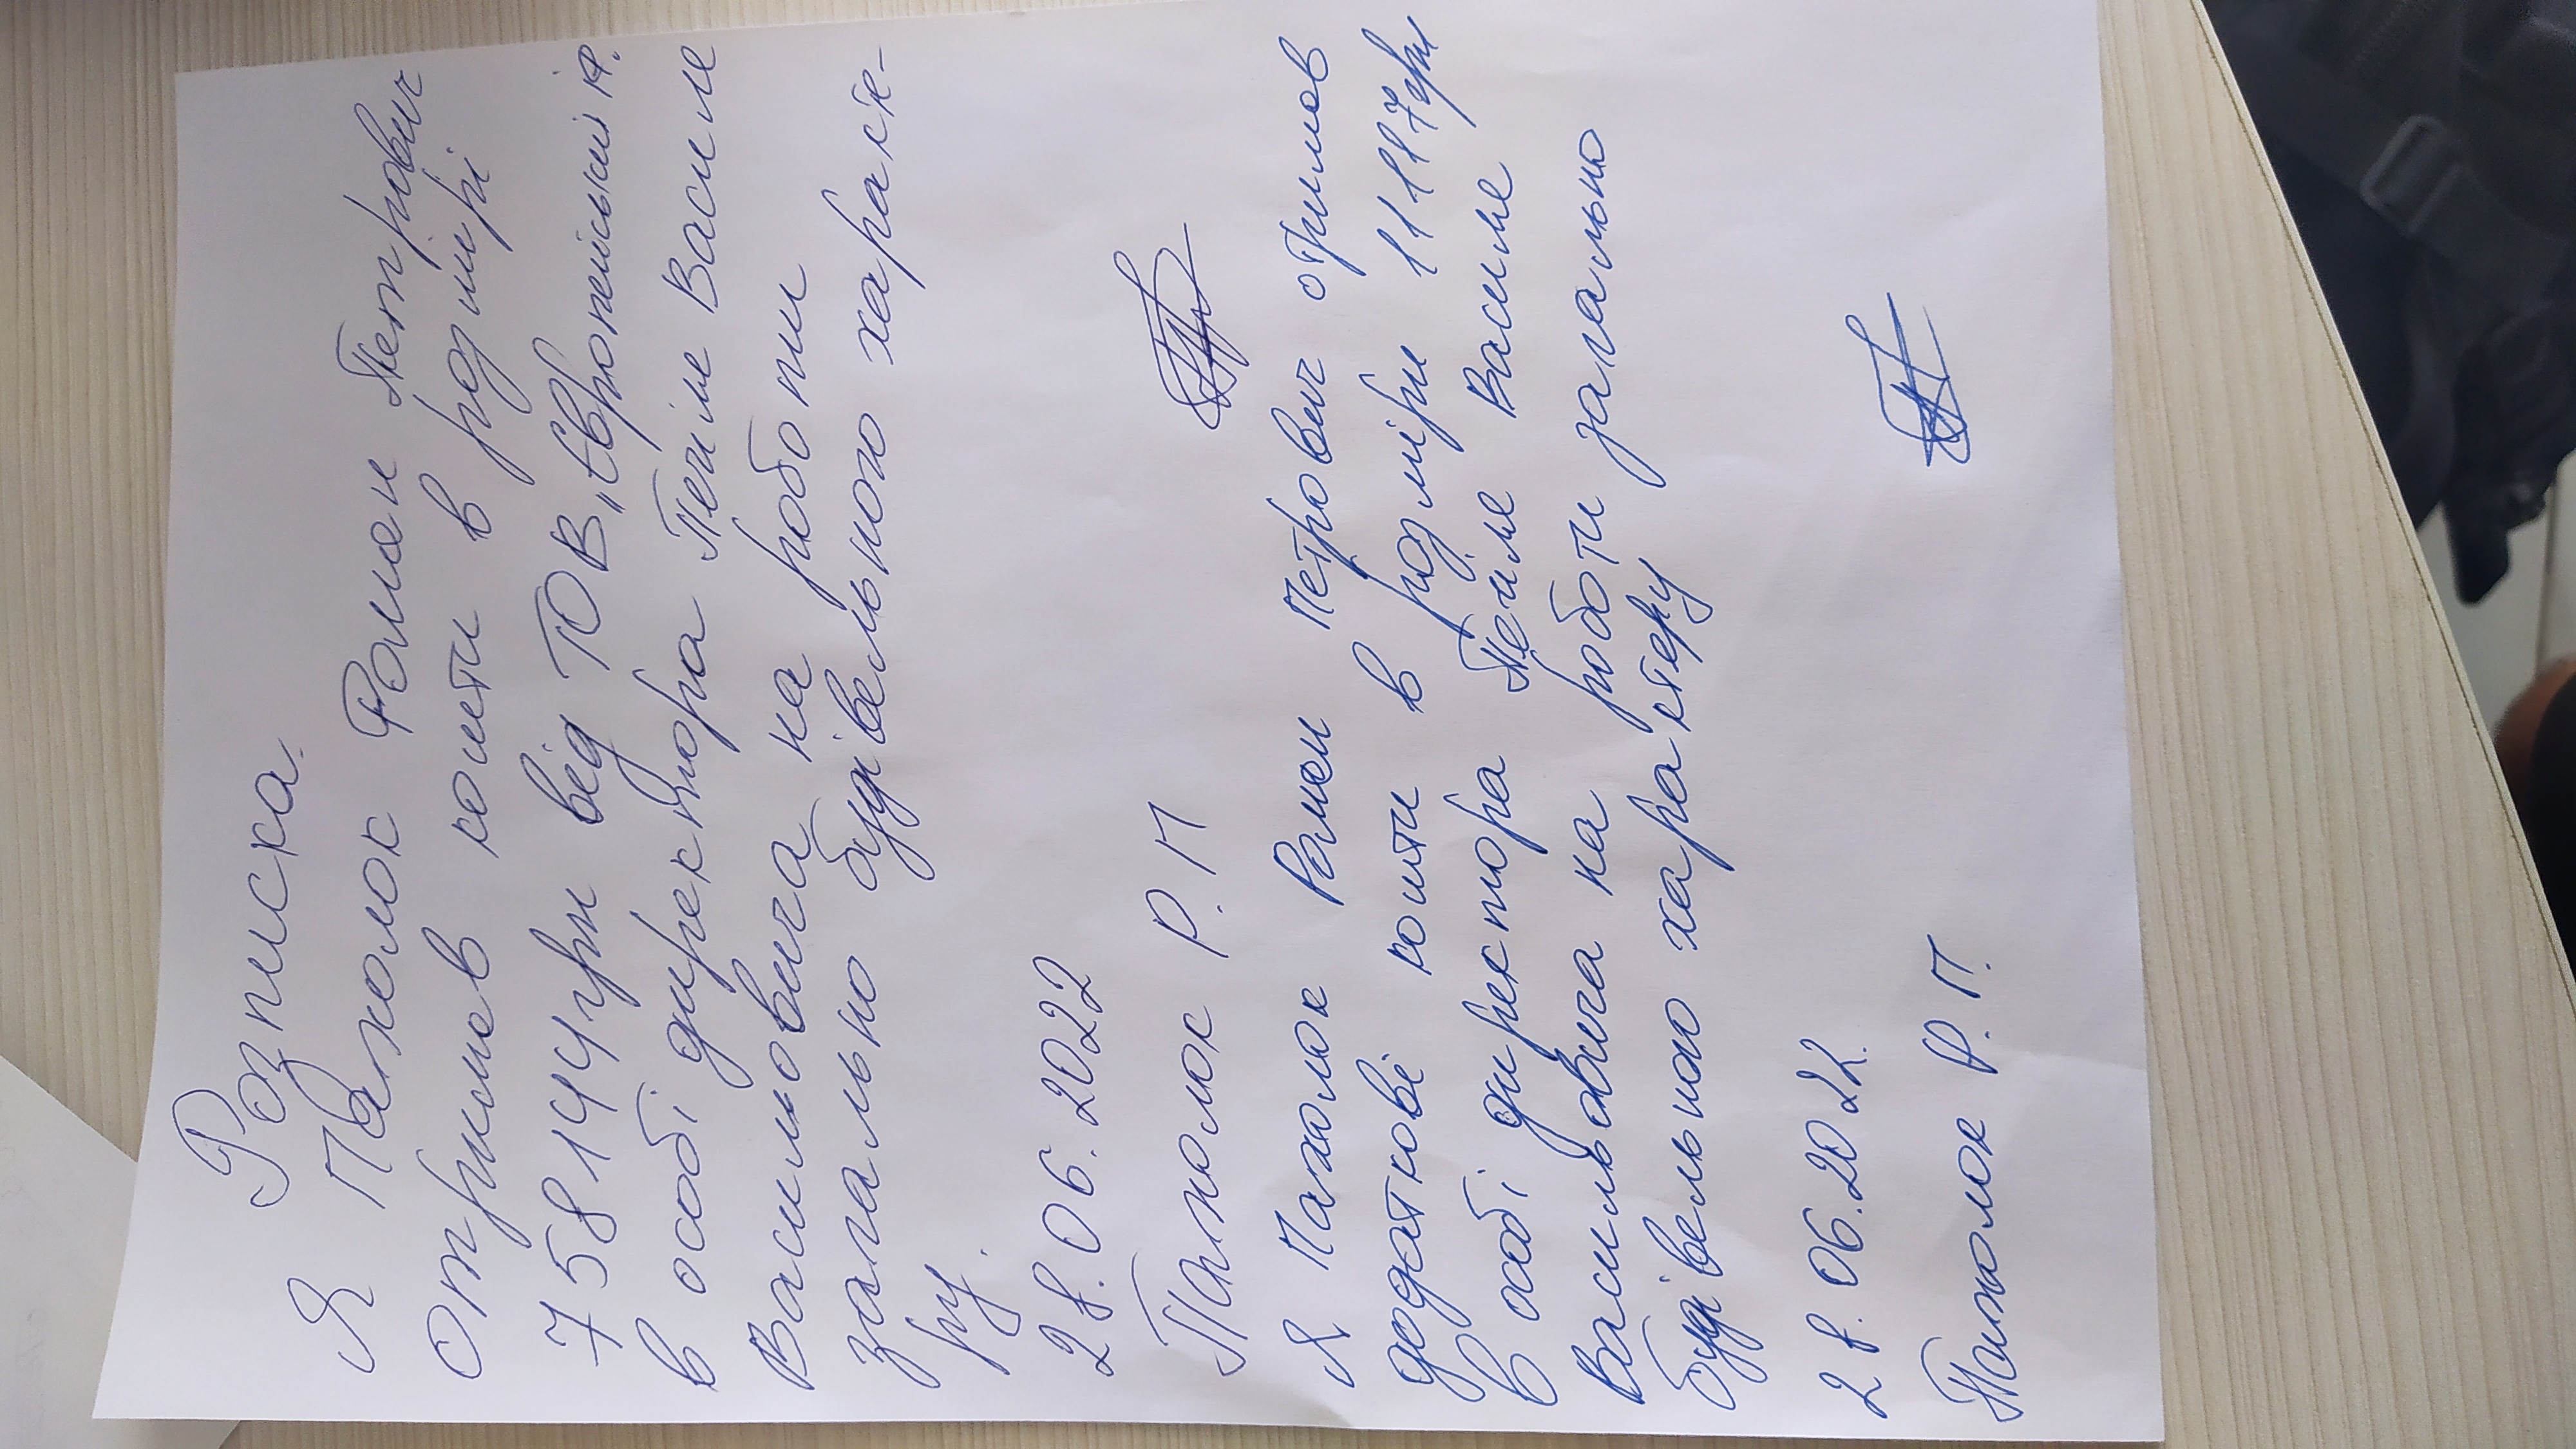 Розписка.
Я Пахолок Роман Петрович
отримав кошти в розмірі
758144грн від ТОВ „Європейський
в особі директора Василя
Васильовича на роботи
загально будівельного характе-
ру.
28.06.2022
Пахолок Р. П
Я Пахолок Роман Петрович отримав
додаткові кошти в розміри 11117грн
в особі директора Василя
Васильовича на роботи загально
будівельного характеру
28.06.2022.
Пахолок Р. П.